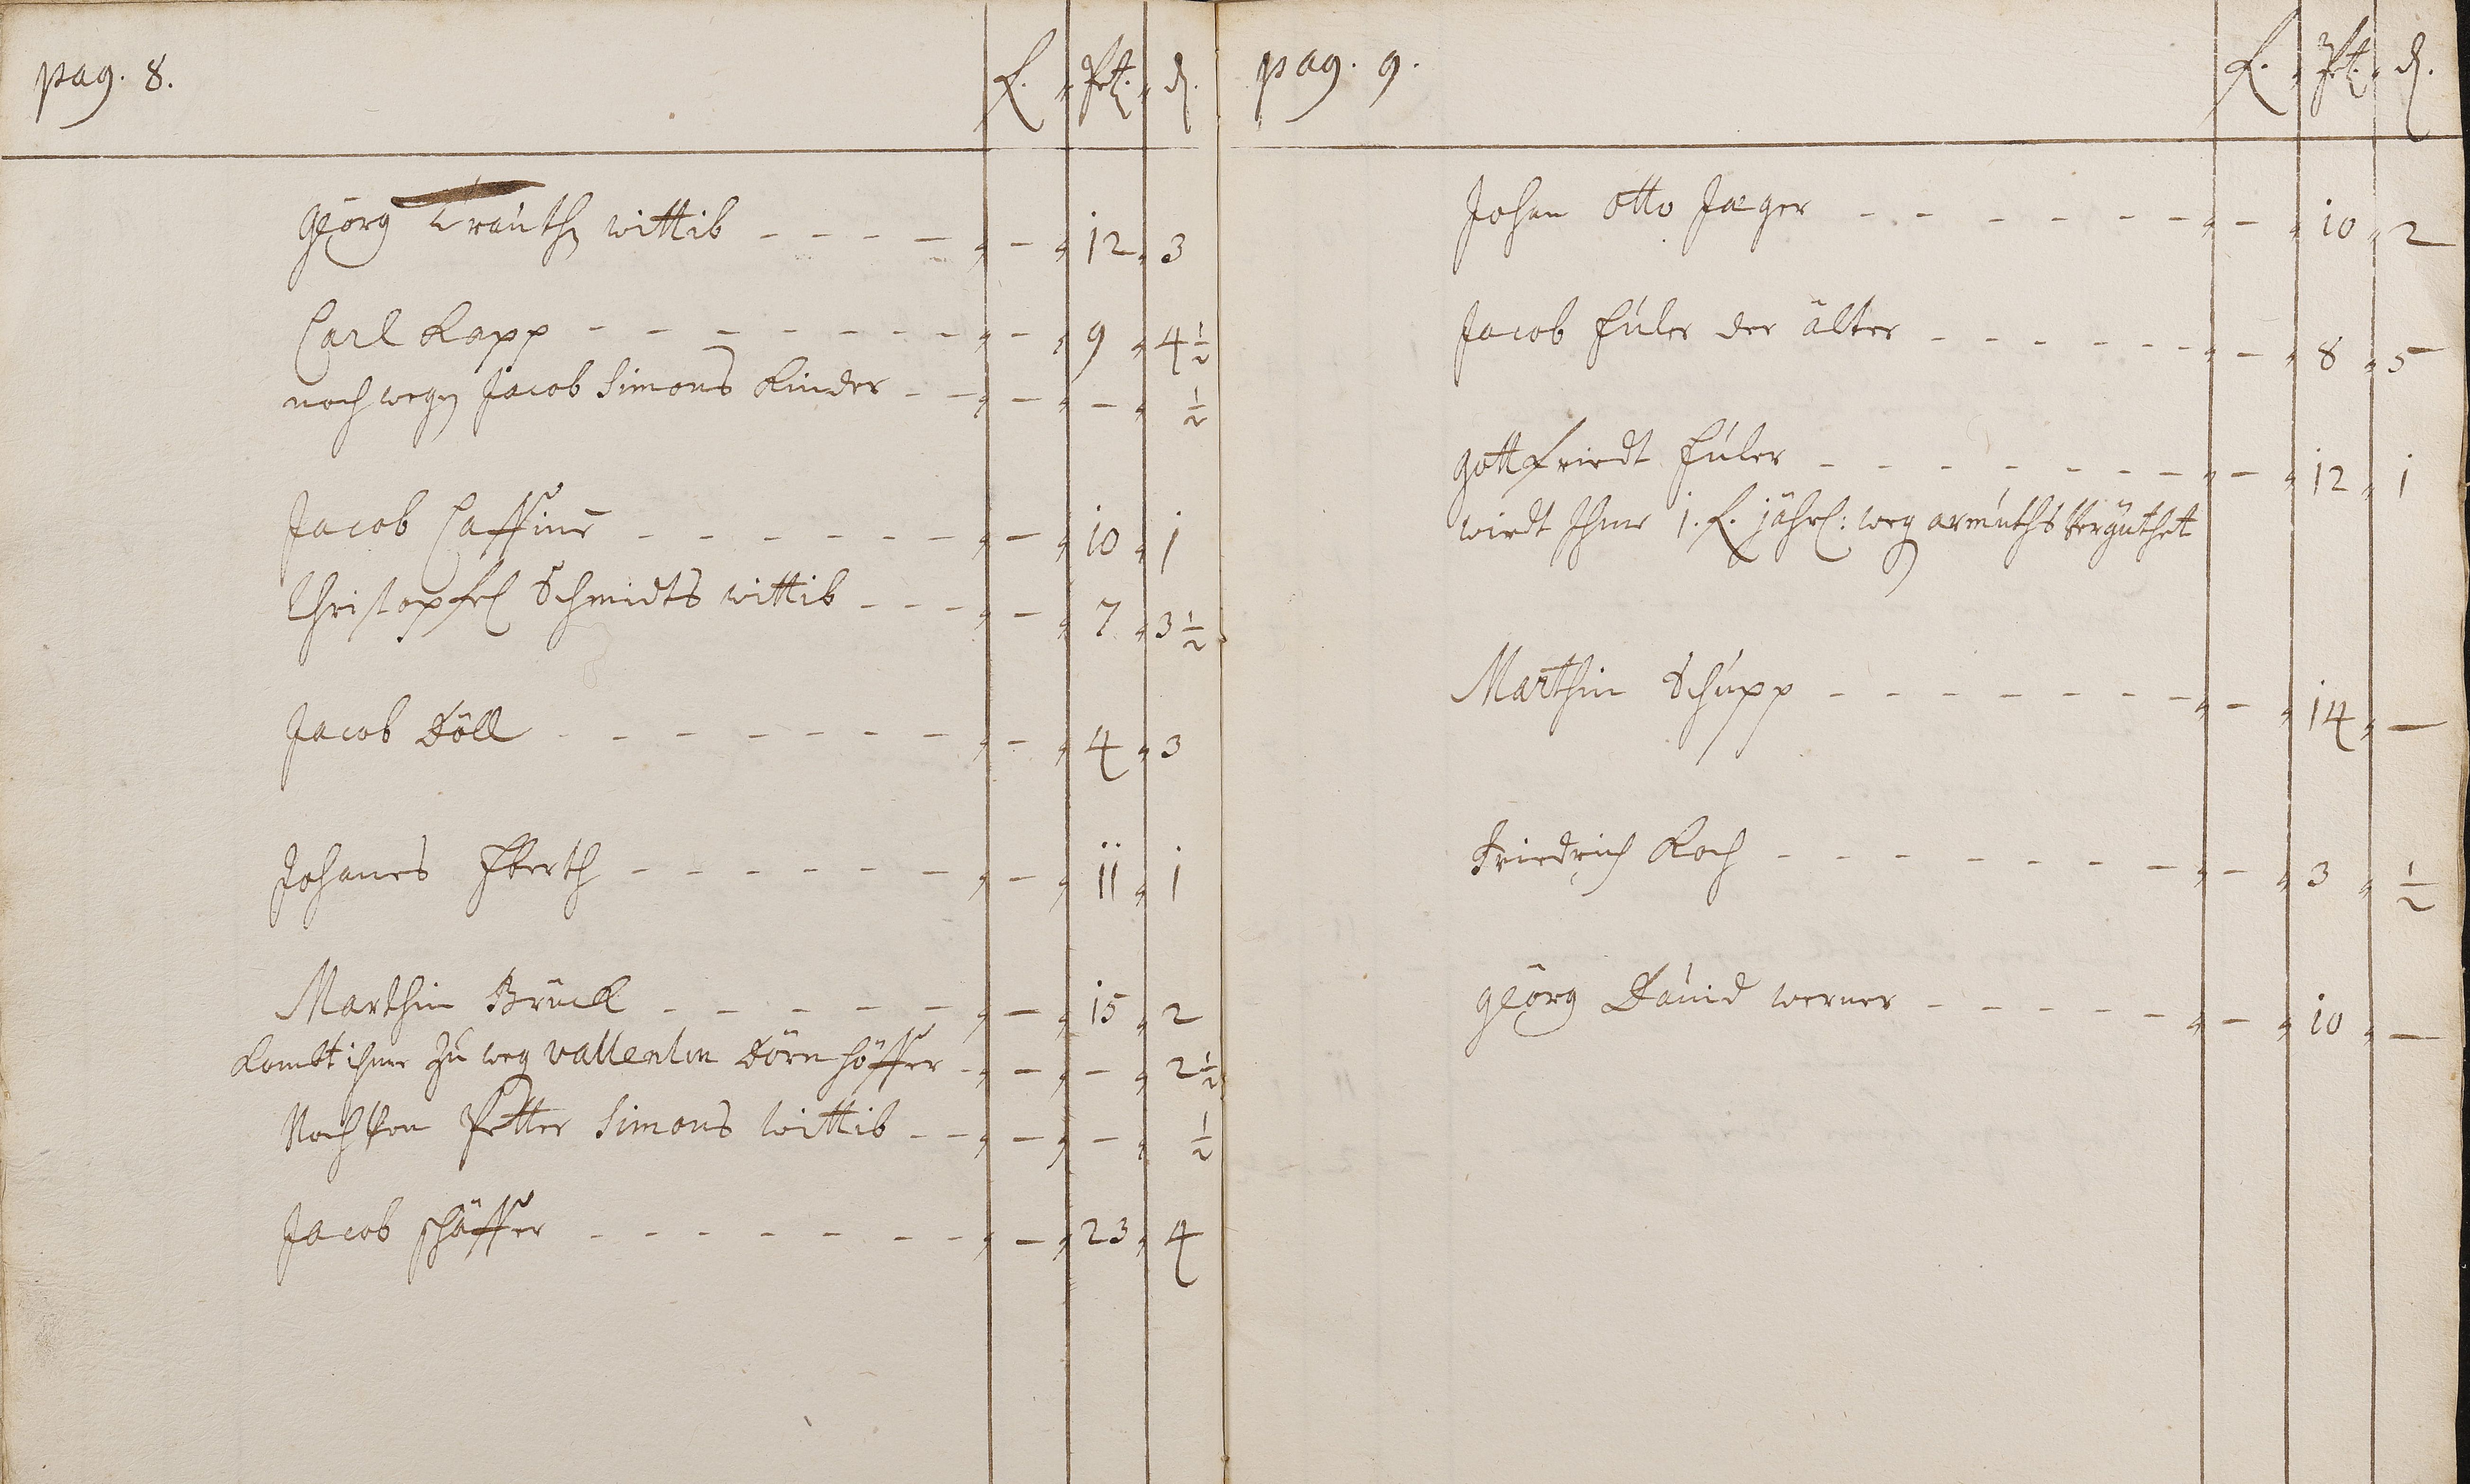 pag. 8. f. btz. d.
Georg Trauths wittib - - - - " - " 12 " 3
Carl Rapp - - - - - - - - " - " 9 " 4 1/2
noch wegen Jacob Simons Kinder - - " - " - " 1/2
Jacob Caffine - - - - - - " - " 10 " 1
Christopfel Schmidts wittib - - - " - " 7 " 3 1/2
Jacob Döll - - - - - - - " - " 4 " 3
Johanes Eberth - - - - - - " - " 11 " 1
Marthin Brück - - - - - - " - " 15 " 2
Kombt ihme zu weg vallentin Dörnhöffer - " - " - " 2 1/2
Noch von Petter Simons wittib - - " - " - " 1/2
Jacob schäffer - - - - - - - " - " 23 " 4
pag. 9. f. btz. d.
Johan Otto Jaeger - - - - - - - " - " 10 " 2
Jacob Euler der älter - - - - - - " - " 8 " 5
gottfriedt Euler - - - - - - - - " - " 12 " 1
wirdt Ihme 1. f. jährl: weg armuths vergüthet
Marthin Schupp - - - - - - - " - " 14 " -
Friedrich Koch - - - - - - - - " - " 3 " 1/2
georg David werner - - - - - " - " 10 " -